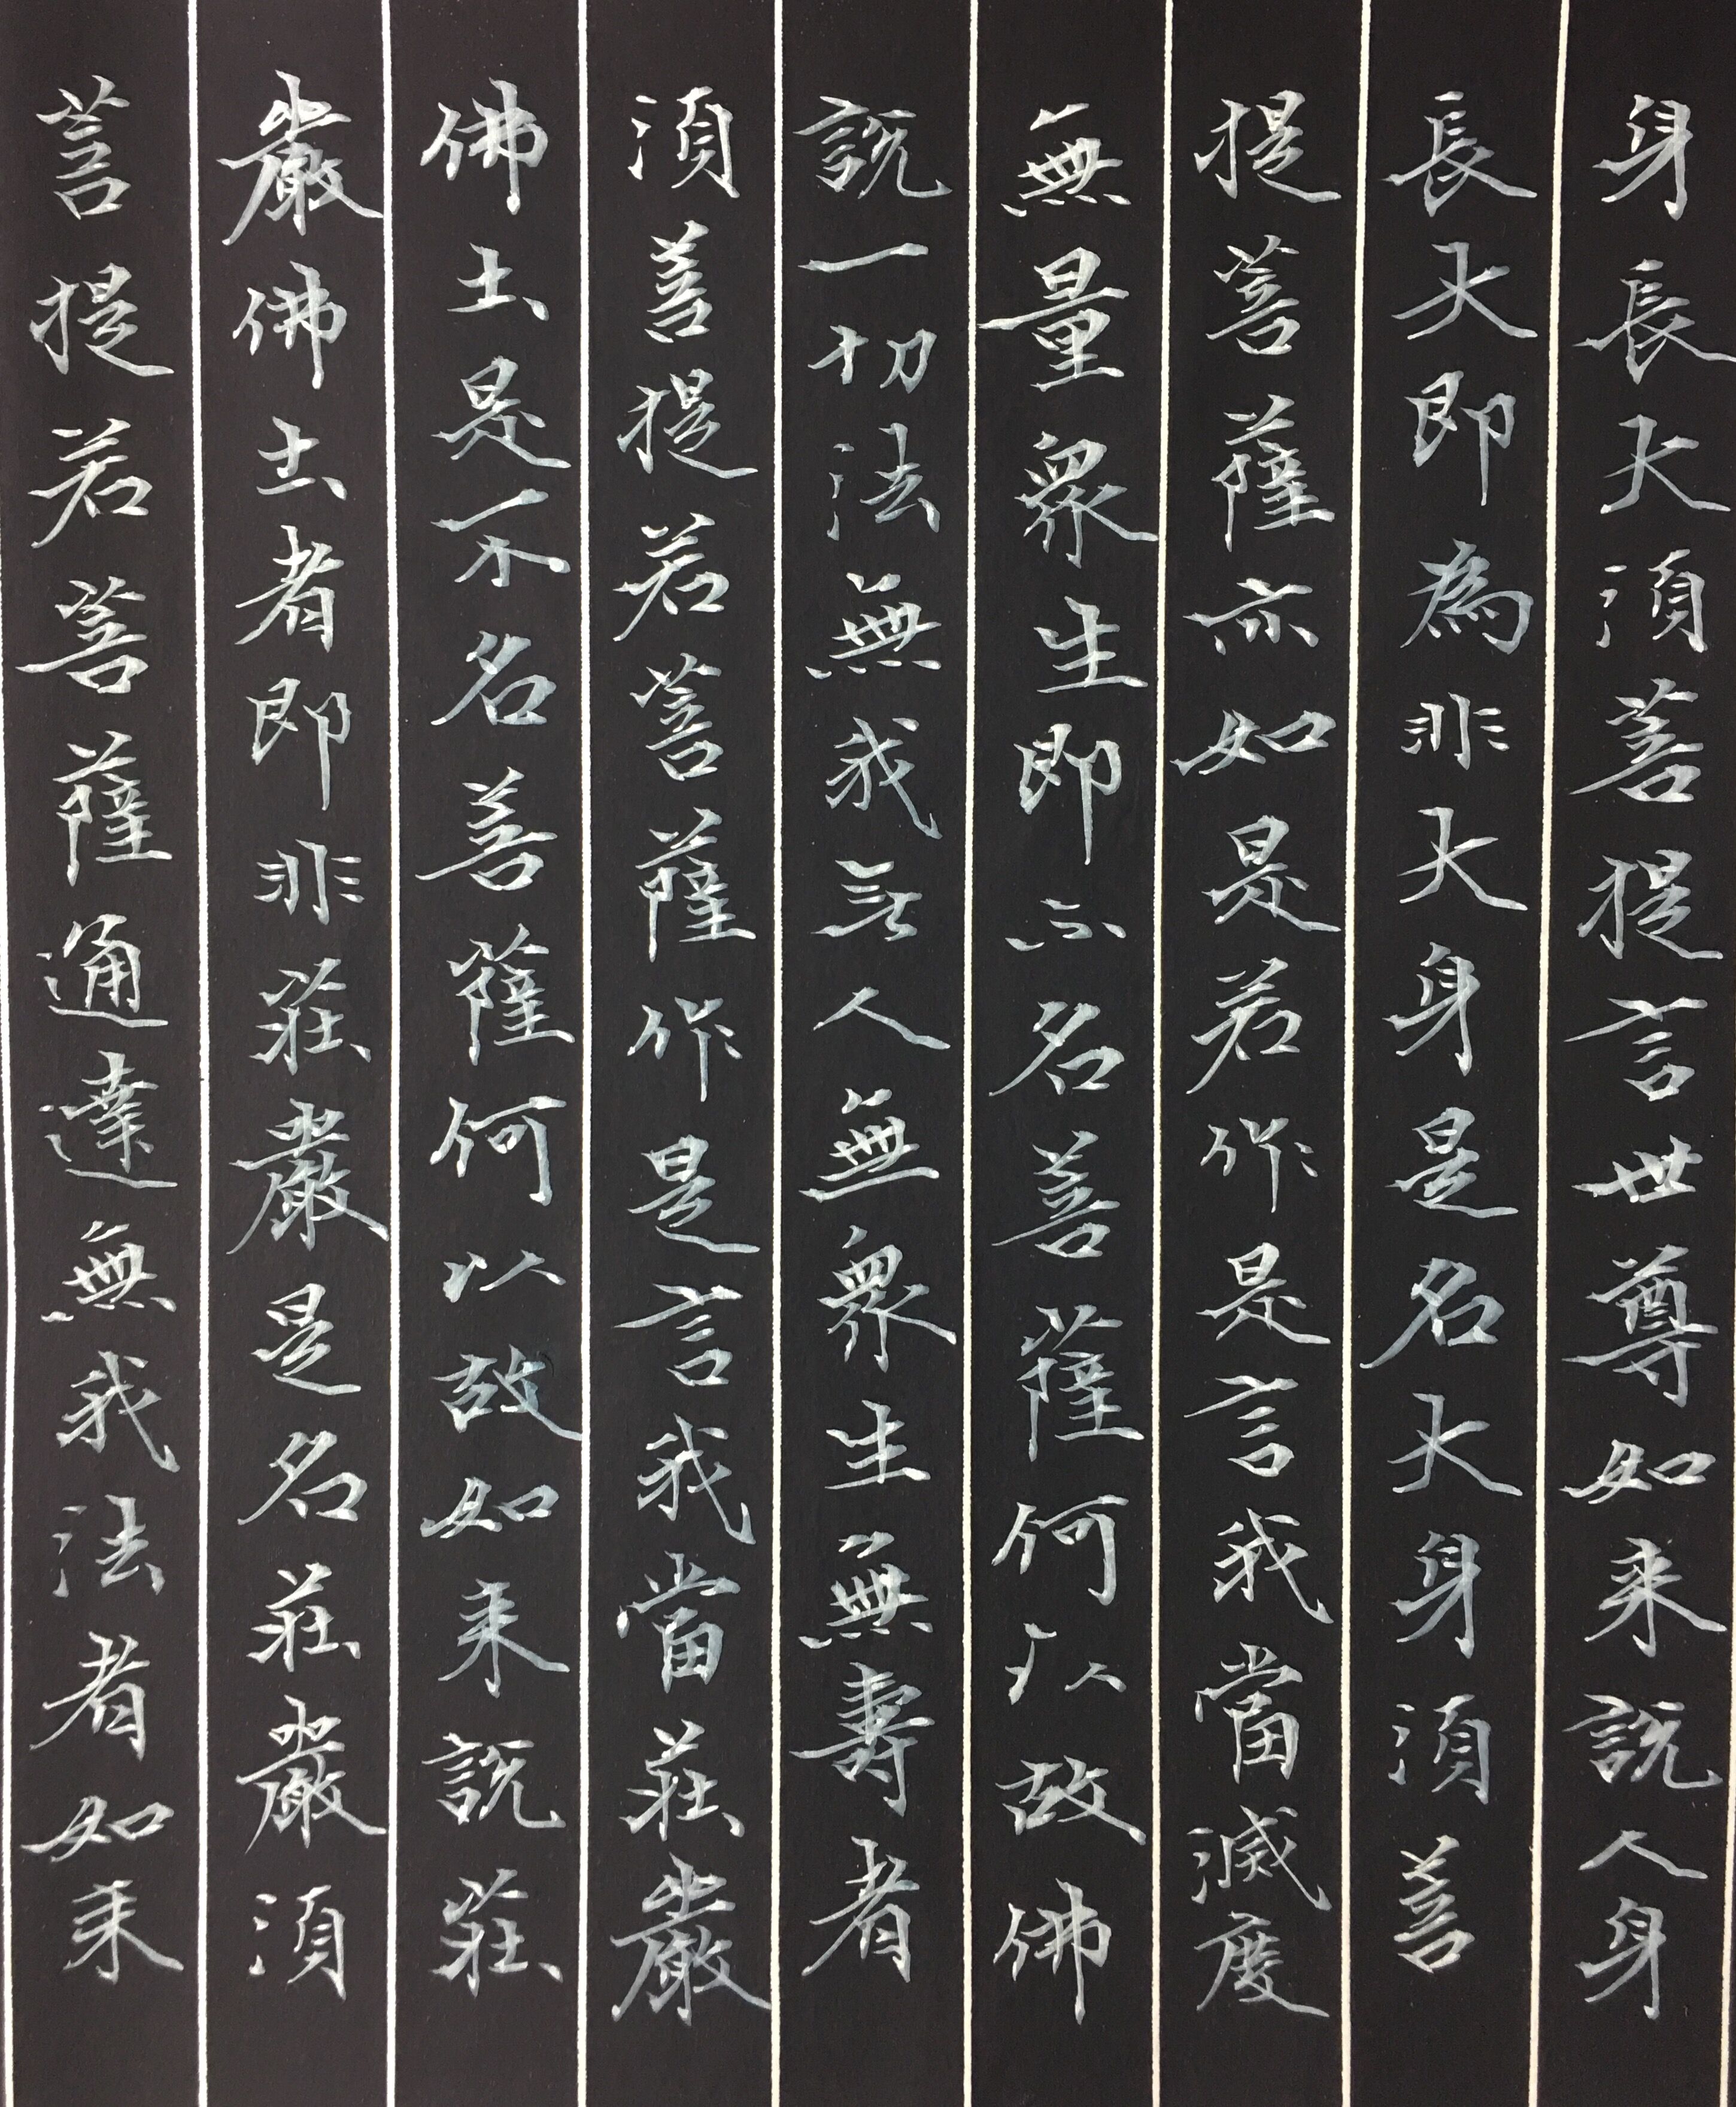 身長大須菩提言世尊如来說人身
長大即為非大身是名大身須菩
提菩薩亦如是若作是言我當滅度
無量眾生即不名菩薩何以故佛
說一切法無我无人無眾生無壽者
須菩提若菩薩作是言我當莊嚴
佛土是不名菩薩何以故如来說莊
嚴佛土者即非莊嚴是名莊嚴須
菩提若菩薩通達無我法者如来